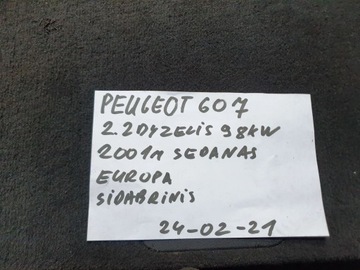 PEUGEOT 607
2.2 DYZELIS 98KW
2001m SEDANAS
EUROPA
SIDABRINIS
24-02-21